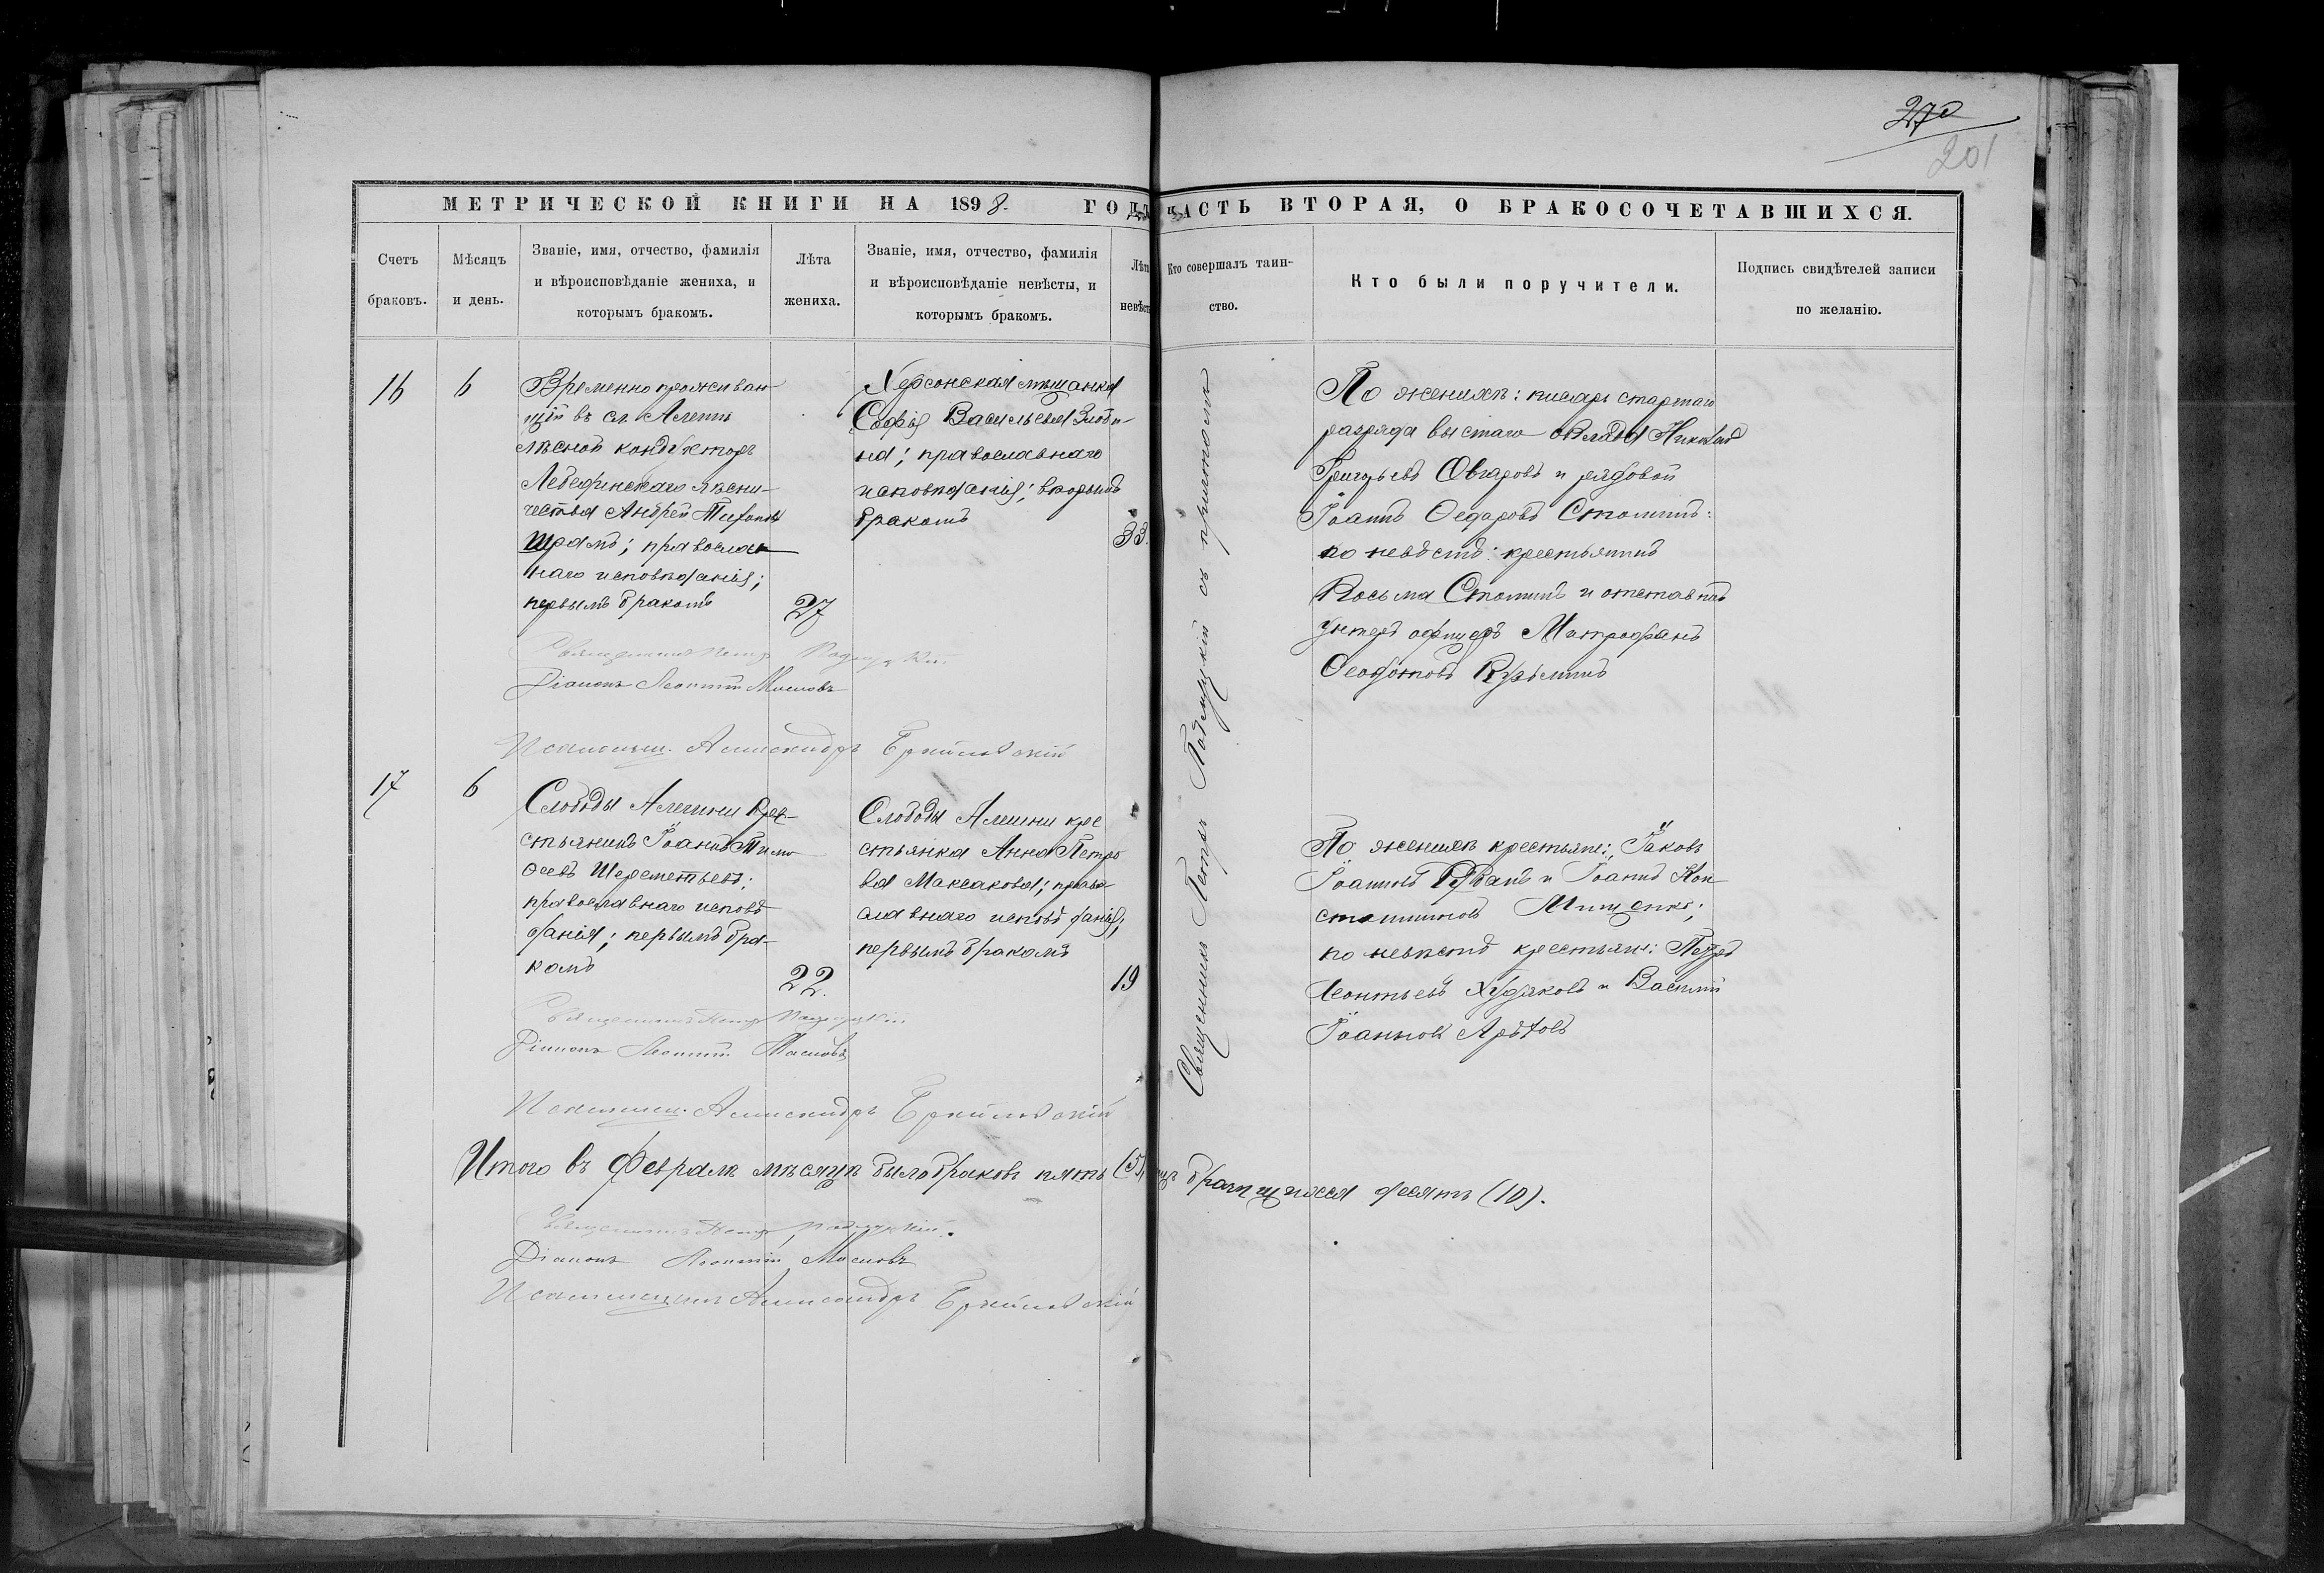 270
201
МЕТРИЧЕСКОЙ КНИГИ НА 1898. ГОДЪ ЧАСТЬ ВТОРАЯ, О БРАКОСОЧЕТАВШИХСЯ.
Счетъ браковъ.
Мѣсяцъ и день.
Званіе, имя, отчество, фамилія
и вѣроисповѣданіе жениха, и
которымъ бракомъ.
Лѣта
жениха.
Званіе, имя, отчество, фамилія
и вѣроисповѣданіе невѣсты, и
которымъ бракомъ.
Лѣта
невѣсты
Кто совершалъ таин-
ство.
Кто были поручители.
Подпись свидѣтелей записи
по желанію.
16
6
Временно прожива
щій въ сл.
лѣсной кондукторъ
Лебединскаго лѣсни-
чества Андрей
Шрамъ; православ
наго исповѣданія;
первымъ бракомъ
27
Херсонская мѣщанка
Софія Васильева
на; православнаго
исповѣданія; вторымъ
бракомъ
33.
Священникъ Петръ Подлуцкій съ причтомъ
По женихѣ: писарь старшаго
разряда высшаго оклада Николай
Григорьевъ Овчаровъ и рядовой
Іоаннъ Ѳедоровъ
по невѣстѣ: крестьянинъ
Косьма и отставной
унтеръ офицеръ Митрофанъ
Ѳеодотовъ Кузьминъ
Священникъ Петръ Подлуцкій.
Діаконъ Леонтій Масловъ
Псаломщ. Александръ
17
6
Слободы Алешни кре-
стьянинъ Іоаннъ Тимо
ѳеевъ Шереметьевъ;
православнаго исповѣ
данія; первымъ бра-
комъ
22.
Слободы Алешни кре
стьянка Анна Петро
ва Максакова; право
славнаго исповѣданія;
первымъ бракомъ
19
По женихѣ крестьяне: Іаковъ
Іоанновъ и Іоаннъ Кон
стантиновъ Мищенко;
по невѣстѣ крестьяне: Петръ
Леонтьевъ Худяковъ и Василій
Іоанновъ
Священникъ Петръ Подлуцкій
Діаконъ Леонтій Масловъ
Псаломщ. Александръ
Итого въ Февралѣ мѣсяцѣ было браковъ пять (5), брачащихся десять (10).
Священникъ Петръ Подлуцкій.
Діаконъ Леонтій Масловъ
Псаломщикъ Александръ